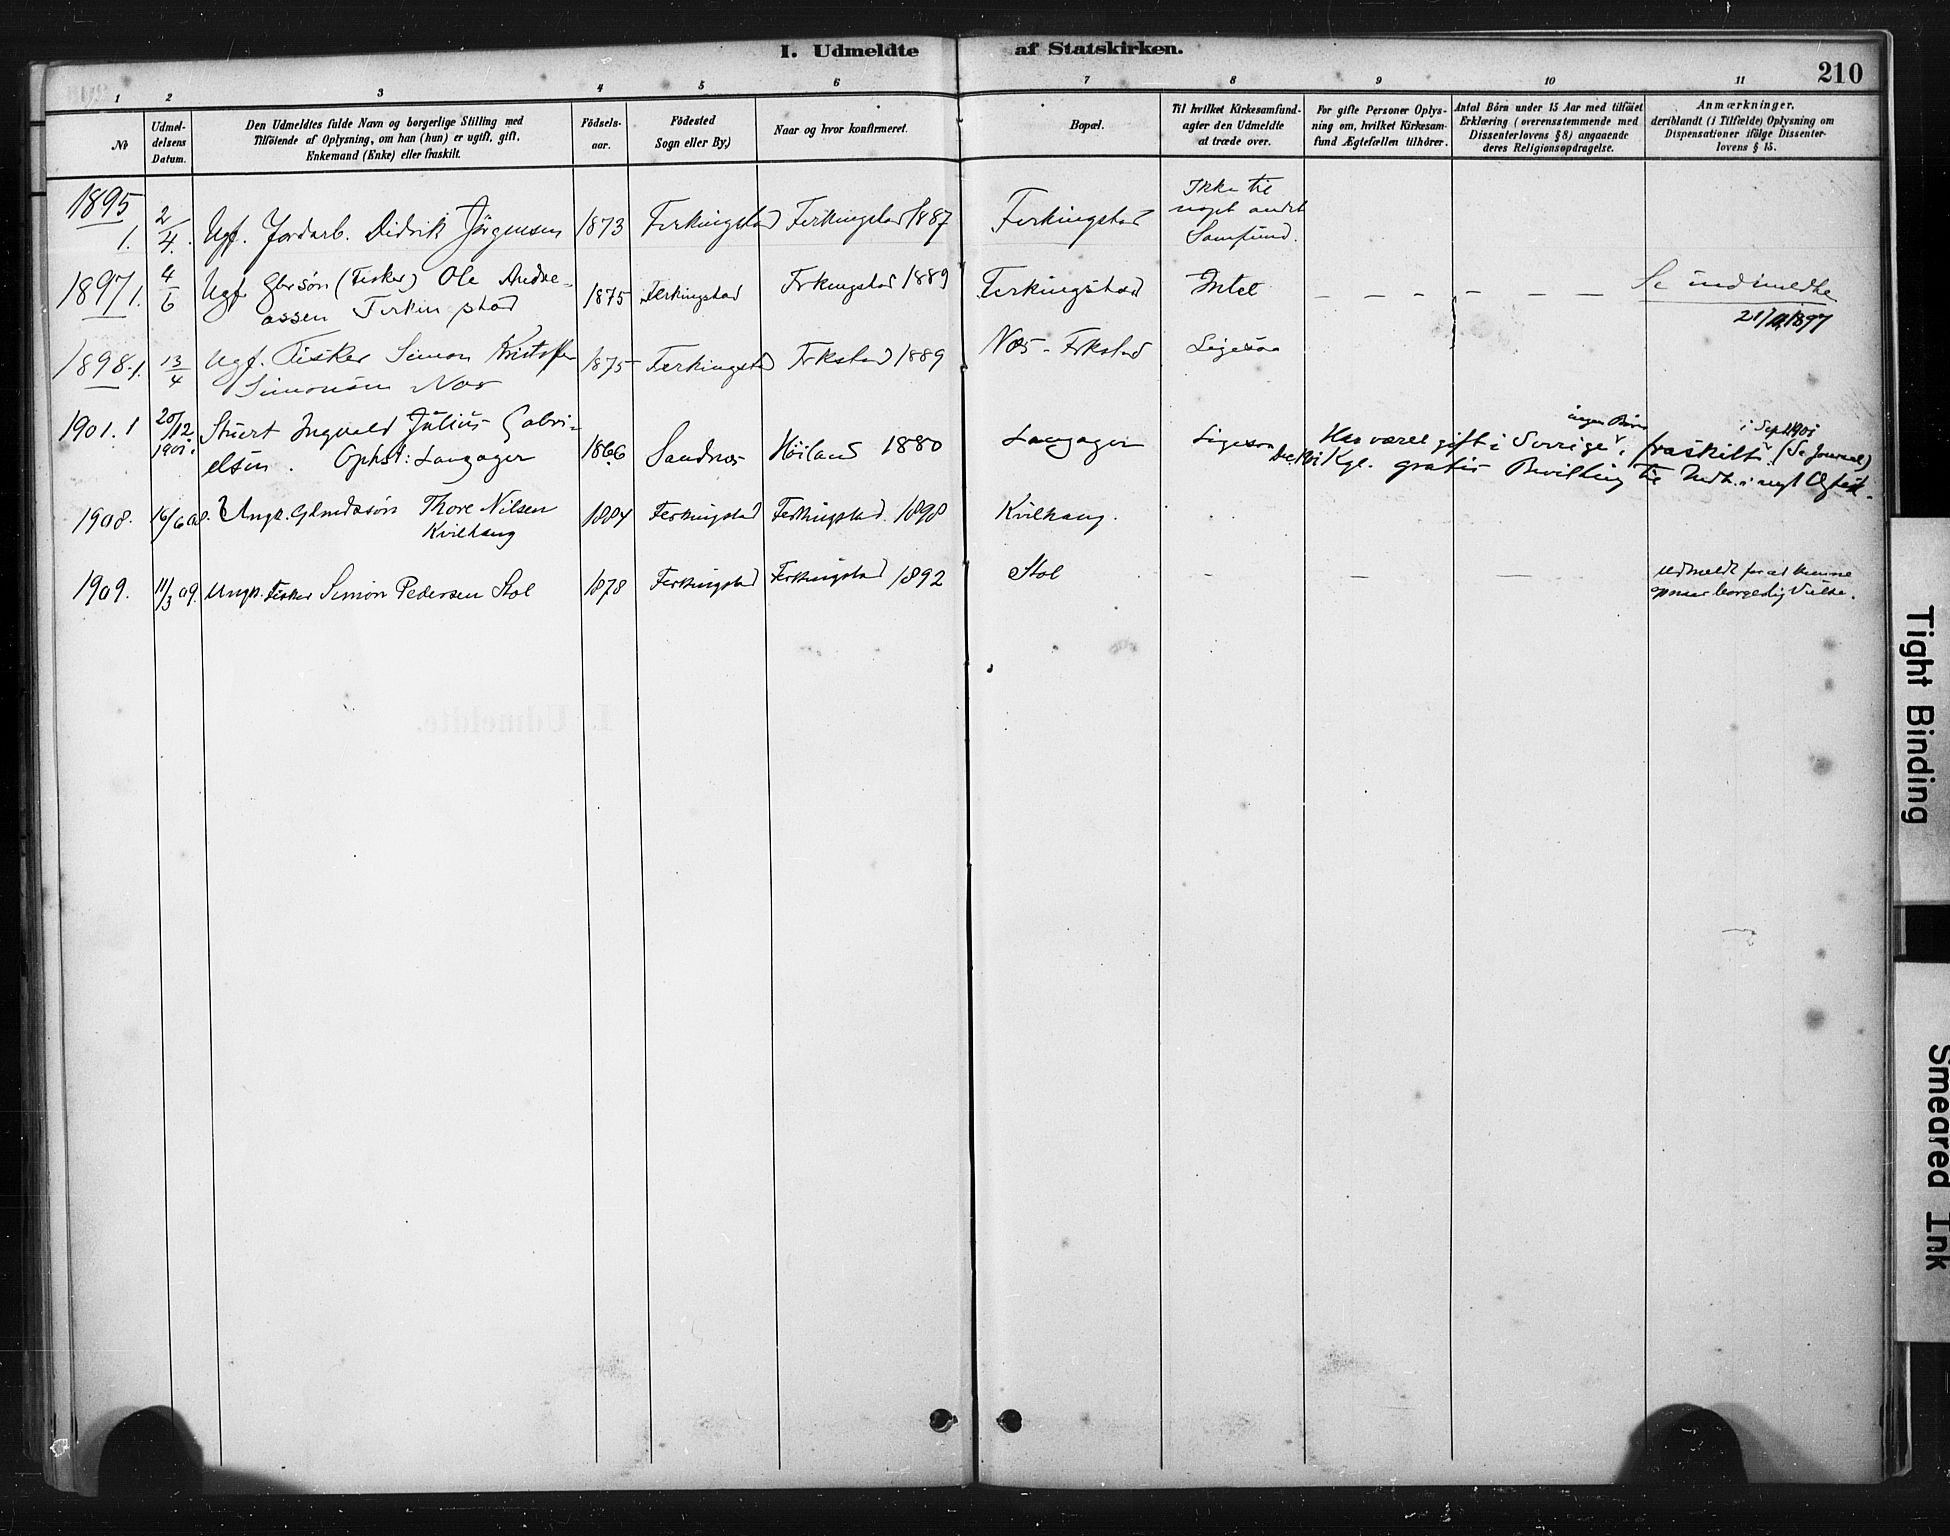 I. Udmeldte af Statskirken.
210
1 2 3 4 5 6 7 8 9 10 11
No
Udmel-
delsens
Datum.
Den Udmeldtes fulde Navn og borgerlige Stilling med
Tilföiende af Oplysning, om han (hun) er ugift, gift,
Enkemand (Enke) eller fraskilt.
Födsels-
aar.
Födested
Sogn eller By,)
Naar og hvor konfirmeret.
Bopæl.
Til hvilket Kirkesamfund-
agter den Udmeldte
at træde over.
For gifte Personer Oplys-
ning om, hvilket Kirkesam-
fund Ægtefællen tilhörer.
Antal Börn under 15 Aar med tilföiet
Erklæring (overensstemmende med
Dissenterlovens § 8) angaaende
deres Religionsopdragelse.
Anmærkninger,
deriblandt (i Tilfælde) Oplysning om
Dispensationer ifölge Dissenter-
lovens § 15.
1895
1. 2/4. Ugf. Jordarb. Didrik Jörgensen 1873 Ferkingstad Ferkingstad 1887 Ferkingstad
Ikke til
noget andet
Samfund.
1897 1. 4/6 Ugf. (Fisker) Ole Andre-
assen Ferkingstad 1875 Ferkingstad Frkingstad 1889 Ferkingstad Intet — — — — — — Se indmeldte
21/11 1897
1898. 1. 13/4 Ugf. Fisker Simon Kristoffer
Simonsen Næs 1875 Ferkingstad Frkstad 1889 Næs - Frkstad Ligesaa
1901. 1 20/12 1901. Stuert Ingvald Julius Gabri-
elsen. Ophst: Langager 1866 Sandnæs Höiland 1880 Langager Ligesaa
Har været gift i Sverige, fraskilt. (Se Journal)
ingen Börn
i Sept 1901
Kgl. gratis Bevilling til Indtr. i nyt Ægtesk.
1908. 16/6 08. Ungk. Gbmdssön Thore Nilsen
Kvilhaug 1884 Ferkingstad Ferkingstad. 1898 Kvilhaug.
1909. 11/3 09. Ungk. Fisker Simon Pedersen Stol 1878 Ferkingstad Ferkingstad 1892 Stol — — — Udmeldt for at kunne
opnaa borgerlig Vielse.
I. Udmeldte.
Tight Binding
Smeared Ink